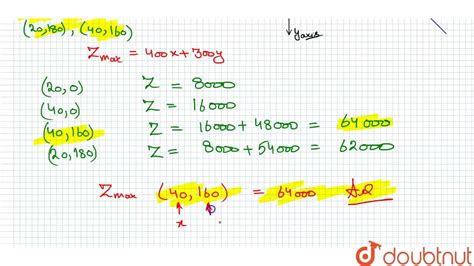 (20,180), (40,160)
↓ y axis
Zmax = 400x + 300y
(20,0) Z = 8000
(40,0) Z = 16000
(40,160) Z = 16000 + 48000 = 64000
(20,180) Z = 8000 + 54000 = 62000
Zmax (40,160) = 64000
x
doubtnut